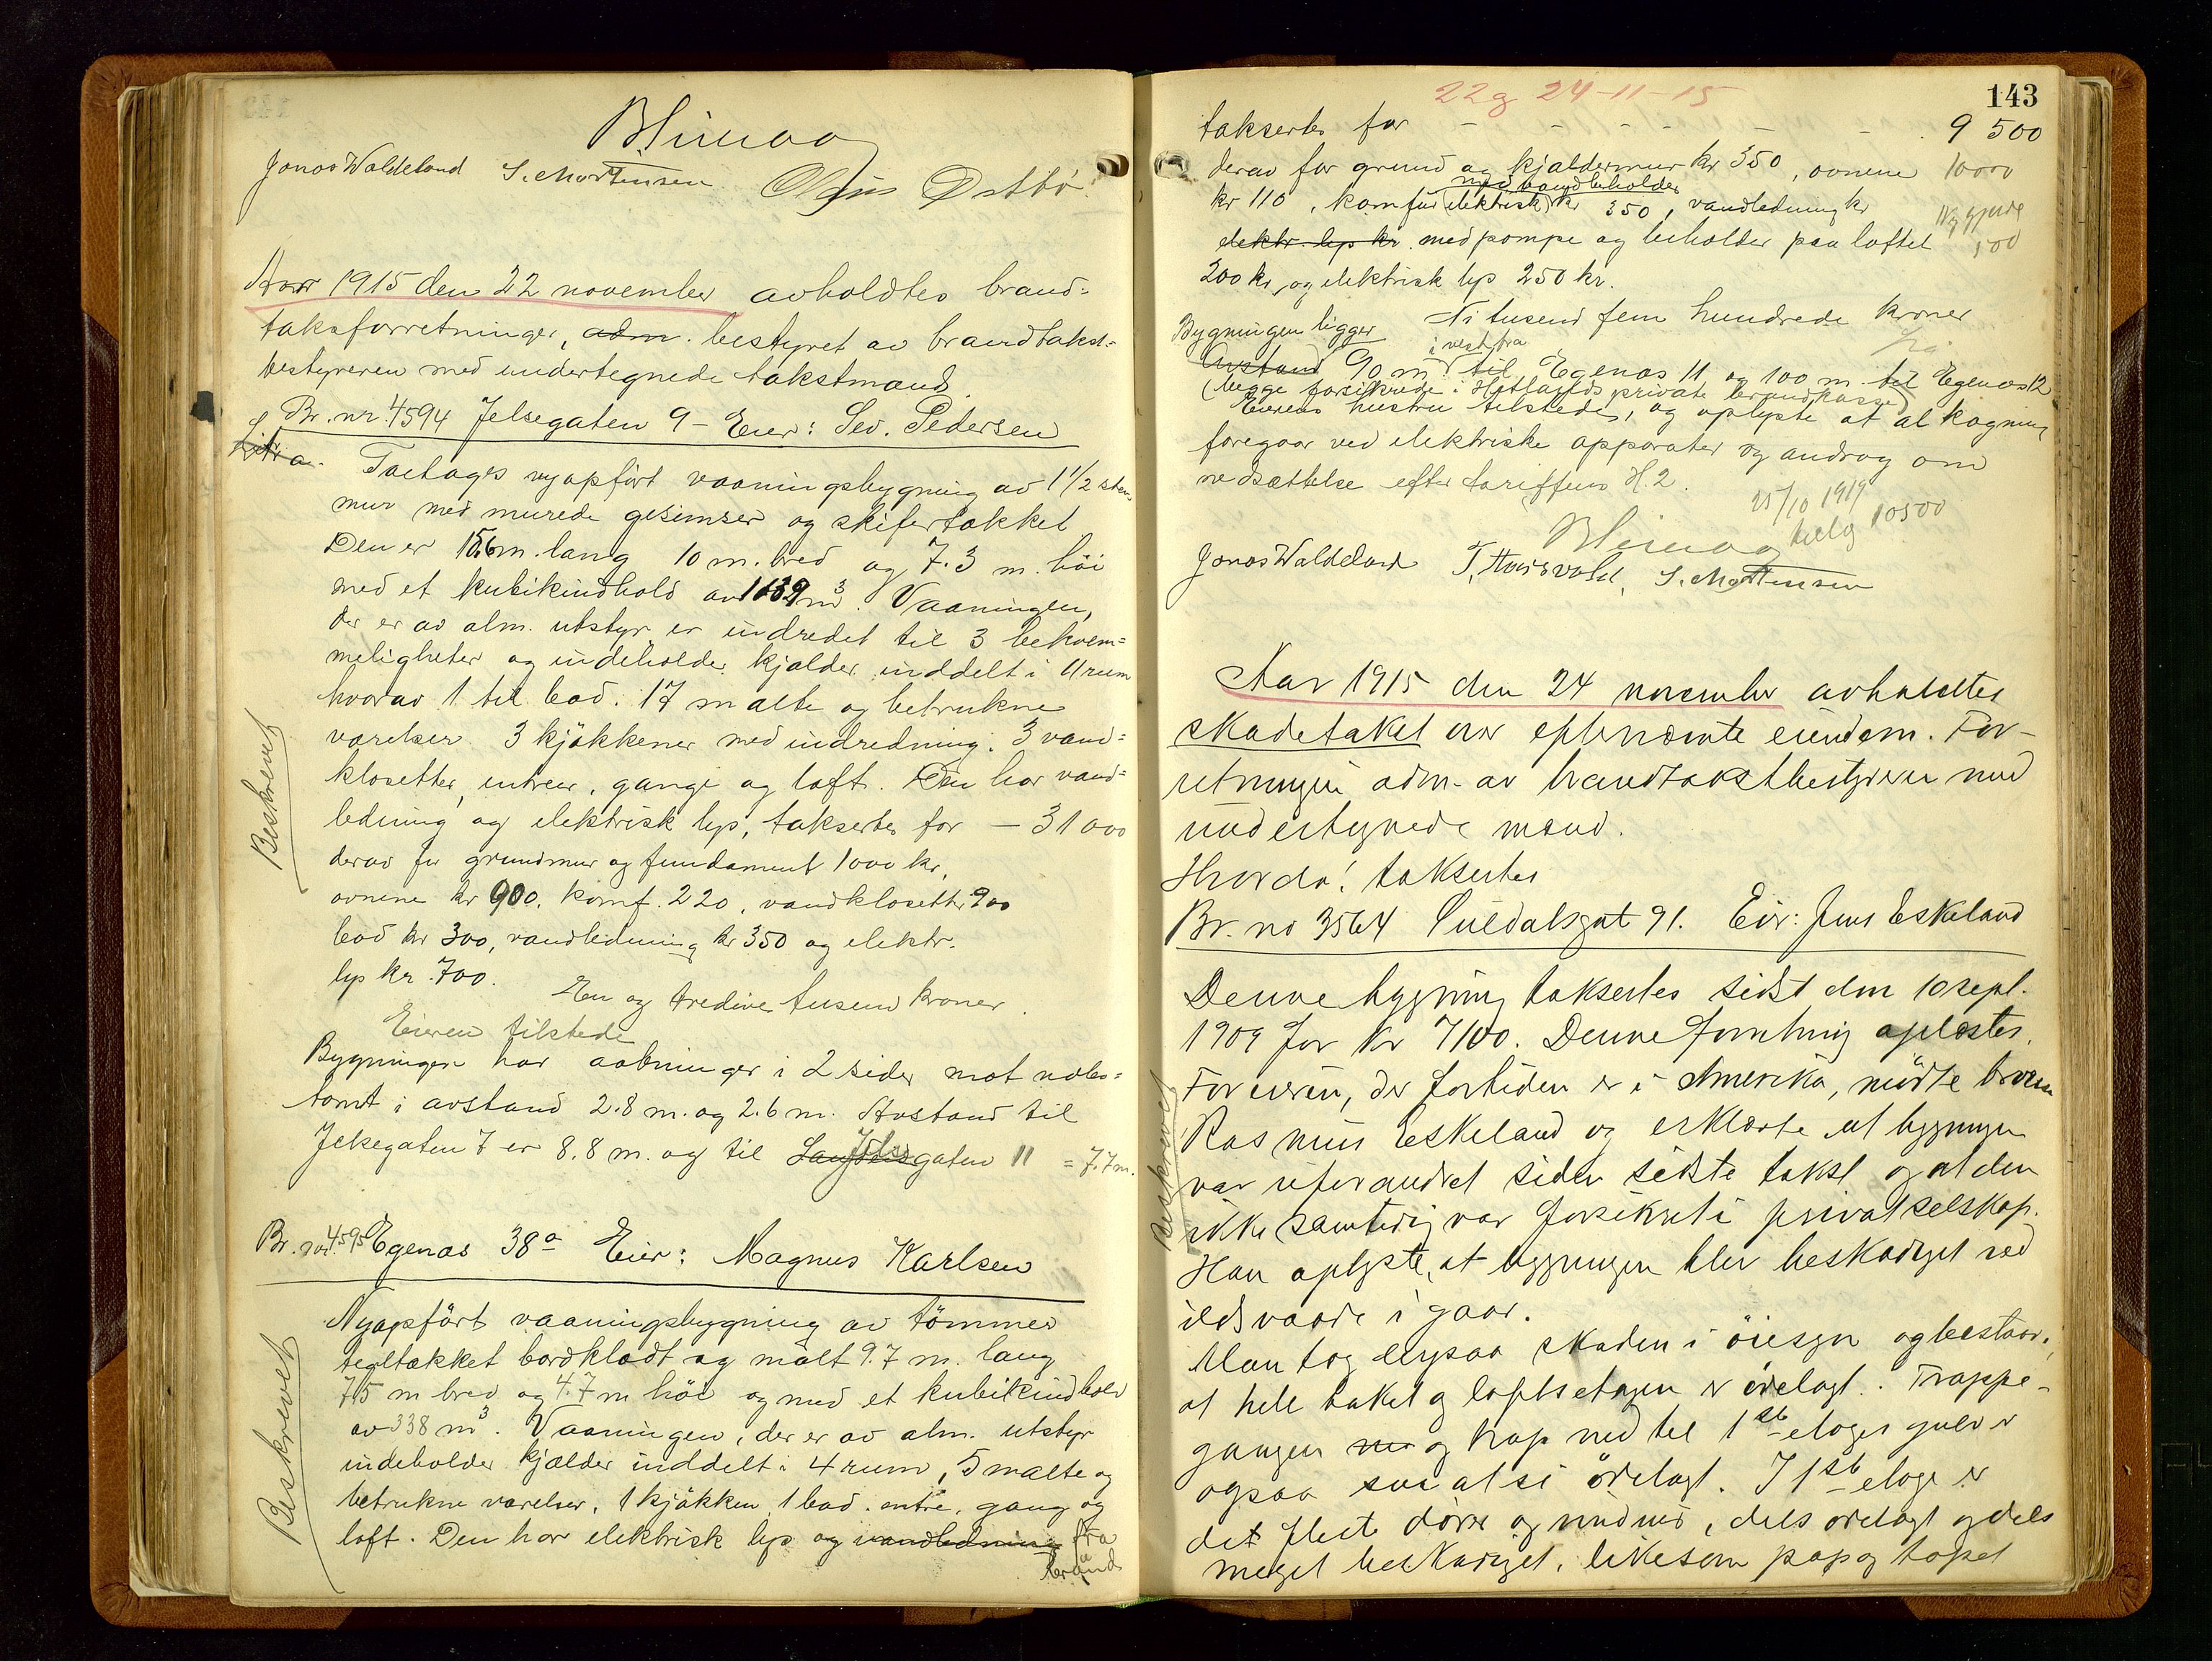 Jonas Waldeland S. Mortensen
Aar 1915 den 22 november avholdtes brand-
taksforretninger, adm. bestyret av brandtakst-
bestyreren med undertegnede takstmænd.
Br. nr. 4594 Jelsegaten 9 - Eier: Sev. Pedersen
Litr a. Toetages nyopført vaaningsbygning av 1 1/2 sten
mur med murede gesimser og skifertækket
Den er 15.6 m. lang 10 m. bred og 7.3 m. høi
med et kubikindhold av 1139 m³. Vaaningen,
der er av alm. utstyr er indredet til 3 bekvem-
meligheter og indeholder kjælder inddelt i 11 rum
hvorav 1 til bad. 17 malte og betrukne
værelser 3 kjøkkener med indredning. 3 vand-
klosetter, entreer, gange og loft. Den har vand-
ledning og elektrisk lys, takseres for — 31 000
derav for grundmur og fundament 1000 kr,
ovnene kr 900. komf. 220, vandklosetter 900
bad kr 300, vandledning kr 350 og elektr.
lys kr. 700. En og tredive tusend kroner.
Eieren tilstede
Bygningen har aabninger i 2 sider mot nabo-
tomt i avstand 2.8 m. og 2.6 m. Avstand til
Jelsegaten 7 er 8.8 m. og til Jelsegaten 11 = 7.7 m.
Br. nr. 4595 Egenæs 38a Eier: Magnus Karlsen
Nyopført vaaningsbygning av tømmer
tegltækket bordklædt og malt 9.7 m. lang
7.5 m bred og 4.7 m høi og med et kubikindhold
av 338 m³. Vaaningen, der er av alm. utstyr
indeholder kjælder inddelt i 4 rum, 5 malte og
betrukne værelser, 1 kjøkken, 1 bad. entre, gang og
loft. Den har elektrisk lys og vandledning fra
brønd
Beskrevet
Beskrevet
22 og 24-11-15
143
takseres for - - - - - - 9 500
derav for grund og kjældermur kr 350, ovnene 10000
med vandbeholder
kr 110, komfur (elektrisk) kr 350, vandledning kr
elektr. lys kr. med pompe og beholder paa loftet
200 kr, og elektrisk lys 250 kr.
Ni tusend fem hundrede kroner
Bygningen ligger
i vest fra
Avstand 90 m til Egenæs 11 og 100 m. til Egenæs 12
(begge forsikrede i Hetlands private brandkasse)
Eierens hustru tilstede, og oplyste at al kogning
foregaar ved elektriske apparater og androg om
nedsættelse efter tariffens H. 2.
25/10 1919
10500
Jonas Waldeland T. Hausvold, S. Mortensen
Aar 1915 den 24 november avholdtes
skadetakst over efternævnte eiendom. For-
retningen adm. av brandtakstbestyreren med
undertegnede mænd.
Hvorda! takseres
Br. no 3564 Suldalsgat 91. Eier: Jens Eskeland
Denne bygning takseres sidst den 10 sept.
1909 for kr 7100. Denne forretning oplæstes.
For eieren, der for tiden er i Amerika, mødte broren
Rasmus Eskeland og erklærte at bygningen
var uforandret siden sidste takst og at den
ikke samtidig var forsikret i privat selskap.
Han oplyste, at bygningen blev beskadiget ved
ildsvaade i gaar.
Man tog derpaa skaden i øiesyn og bestaar i,
at hele taket og loftsetagen er ødelagt. Trappe-
gangen og trap ned til 1ste etages gulv er
ogsaa saa at si ødelagt. I 1ste etage er
det fleste dører og vinduer, dels ødelagt og dels
meget beskadiget, likesom pap og tapet
Beskrevet